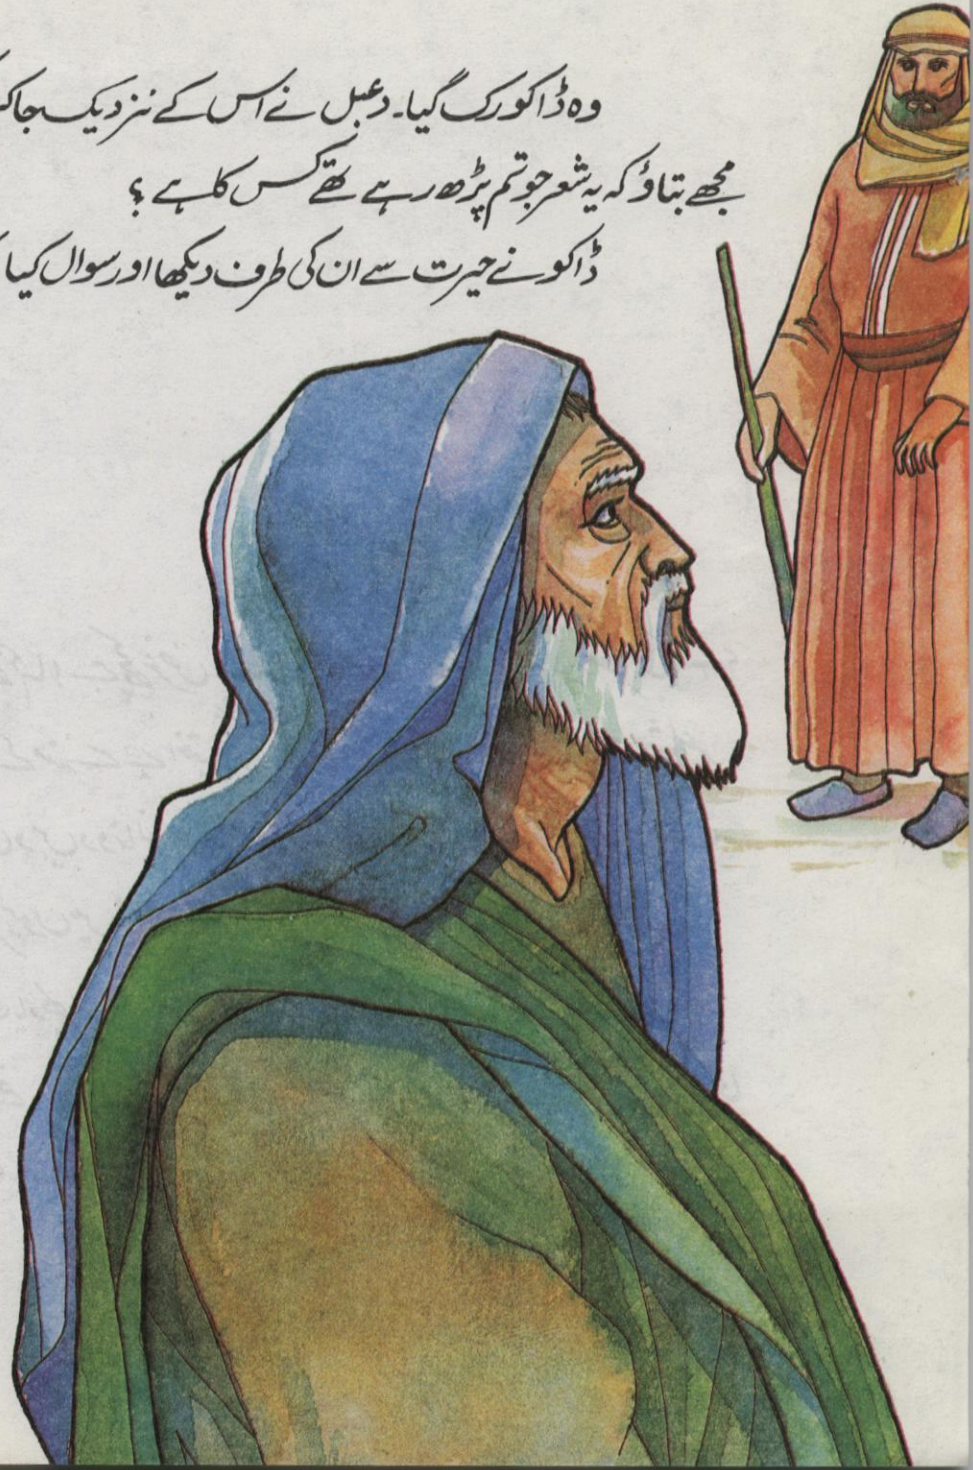 وہ ڈاکو رک گیا۔ دعبل نے اس کے نزدیک جا کر
مجھے بتاؤ کہ یہ شعر جو تم پڑھ رہے تھے کس کا ہے ؟
ڈاکو نے حیرت سے ان کی طرف دیکھا اور سوال کیا